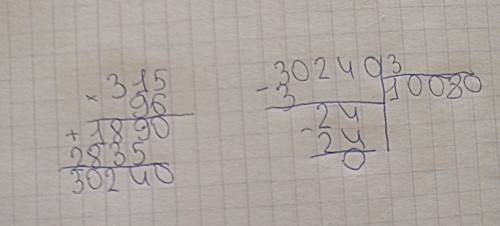 × 315
96
+ 1890
2835
30240
- 30240 3
3 10080
- 24
24
0